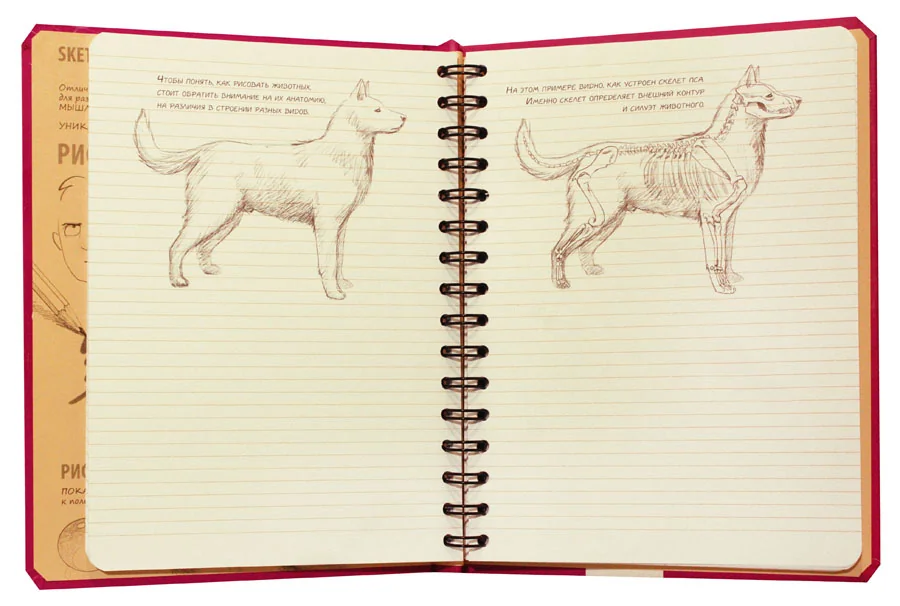 SKE
для раз
УНИК
РИС
РИС
ПОКА
Чтобы понять, как рисовать животных,
стоит обратить внимание на их анатомию,
на различия в строении разных видов.
На этом примере видно, как устроен скелет пса.
Именно скелет определяет внешний контур
и силуэт животного.